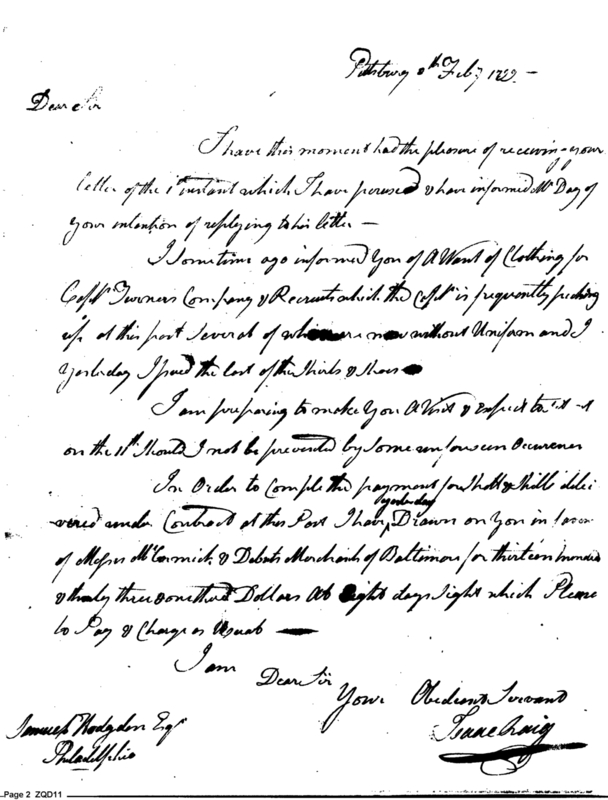 Pittsburg 8th Feby
Dear Sir
I have this moment had the pleasure of receiving your
letter of the 1st instant which I have perused & have informed Mr Day of
your intention of replying to his letter —
I Sometime ago informed You of A Want of Clothing for
Capt. Turners Company & Recruits which the Capt. is frequently picking
up at this post Several of whom are now without Uniform and I
yesterday Issued the last of the Shirts & Shoes
I am preparing to make You A Visit & expect to
on the 11th Should I not be prevented by Some unforseen Occurence
In Order to Complete the payment for Shott & Shells deli
yesterday
vered under Contract at this Post I have Drawn on You in favor
of Messrs McCormick & Merchants of Baltimore for thirteen hundred
& thirty three & one third Dollars At Eight days Sight which Please
to Pay & Charge as Usual —
I am
Dear Sir
Your Obedient Servant
Isaac Craig
Samuel Hodgdon Esqr
Philadelphia
Page 2 ZQD11